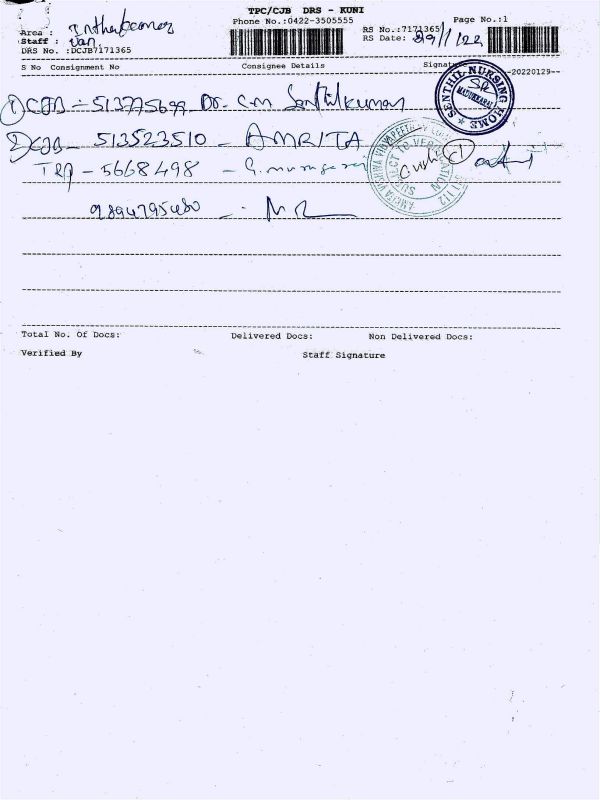 TPC/CJB DRS - KUNI
Phone No.:0422-3505555
Page No.:1
Area :
Staff : Van
RS No.:7171365
RS Date: 29/1/22
DRS No. :DCJB7171365
S No Consignment No Consignee Details Signat
20220129
SENTHIL NURSING HOME
MADUKKARAI
1 CJB - 513775699 Dr. C.M Senthilkumar
2 CJB - 513523510 - AMRITA
TRP - 5668498 - G.
9894795480 -
AMRITA VISHWA VIDYAPEETHAM
SUBJECT TO VERIFICATION
Total No. Of Docs: Delivered Docs: Non Delivered Docs:
Verified By Staff Signature